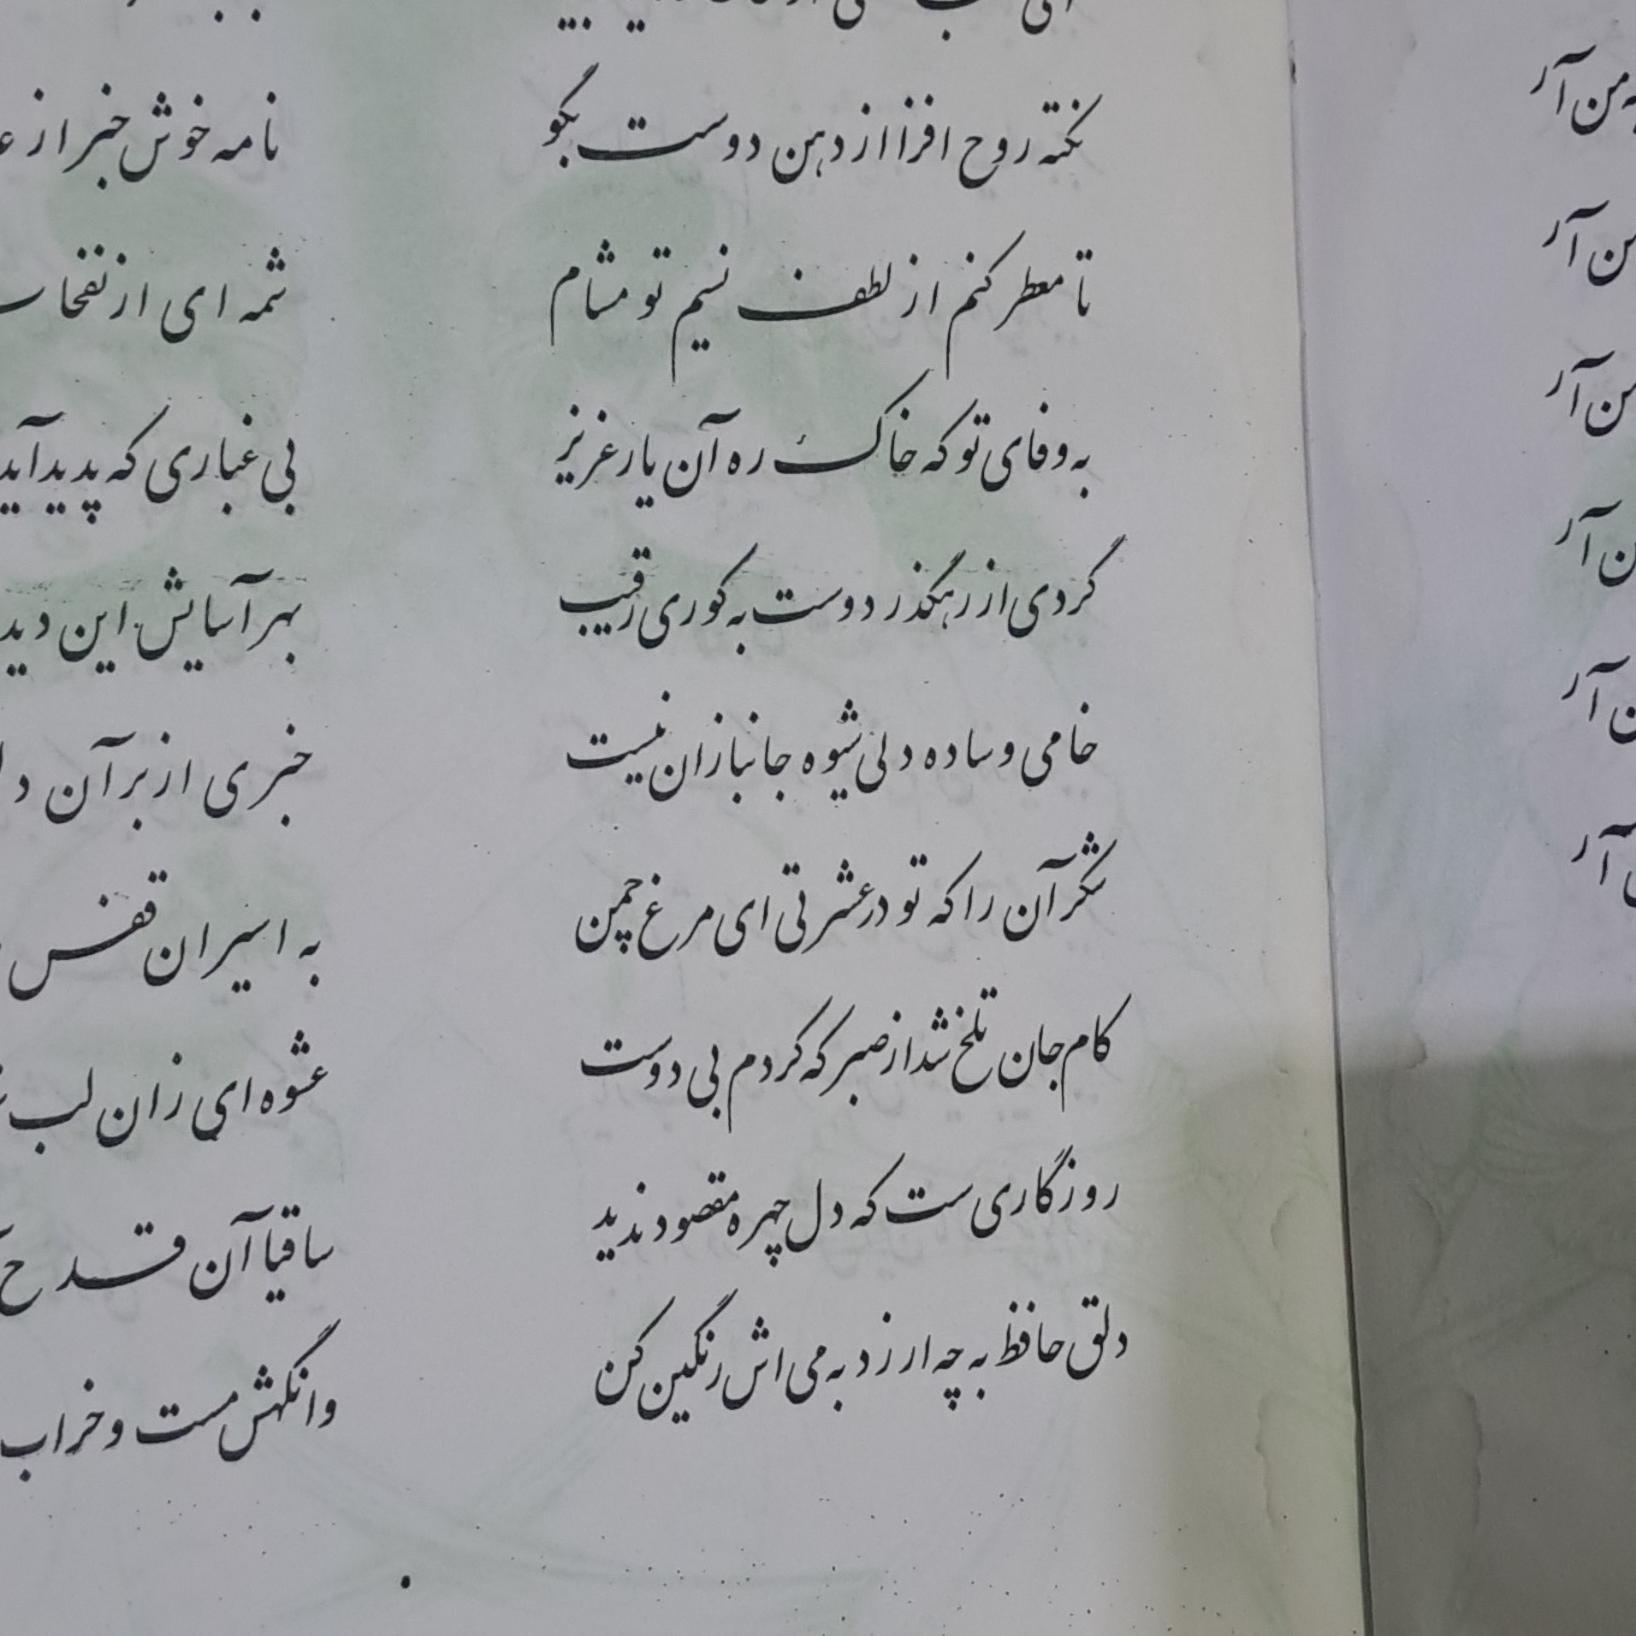 نکته روح افزا از دهن دوست بگو نامه خوش خبر از
تا معطر کنم از لطف نسیم تو مشام شمه ای از نفحات
به وفای تو که خاک ره آن یار عزیز بی غباری که پدید آید
گردی از رهگذر دوست به کوری رقیب بهر آسایش این
خامی و ساده دلی شیوه جانبازان نیست خبری از بر آن
شکر آن را که تو در عشرتی ای مرغ چمن به اسیران قفس
کام جان تلخ شد از صبر که کردم بی دوست عشوه ای زان لب
روزگاری ست که دل چهره مقصود ندید ساقیا آن قدح
دلق حافظ به چه ارزد به می اش رنگین کن وانگهش مست و خراب
من آر
آر
آر
آر
آر
آر